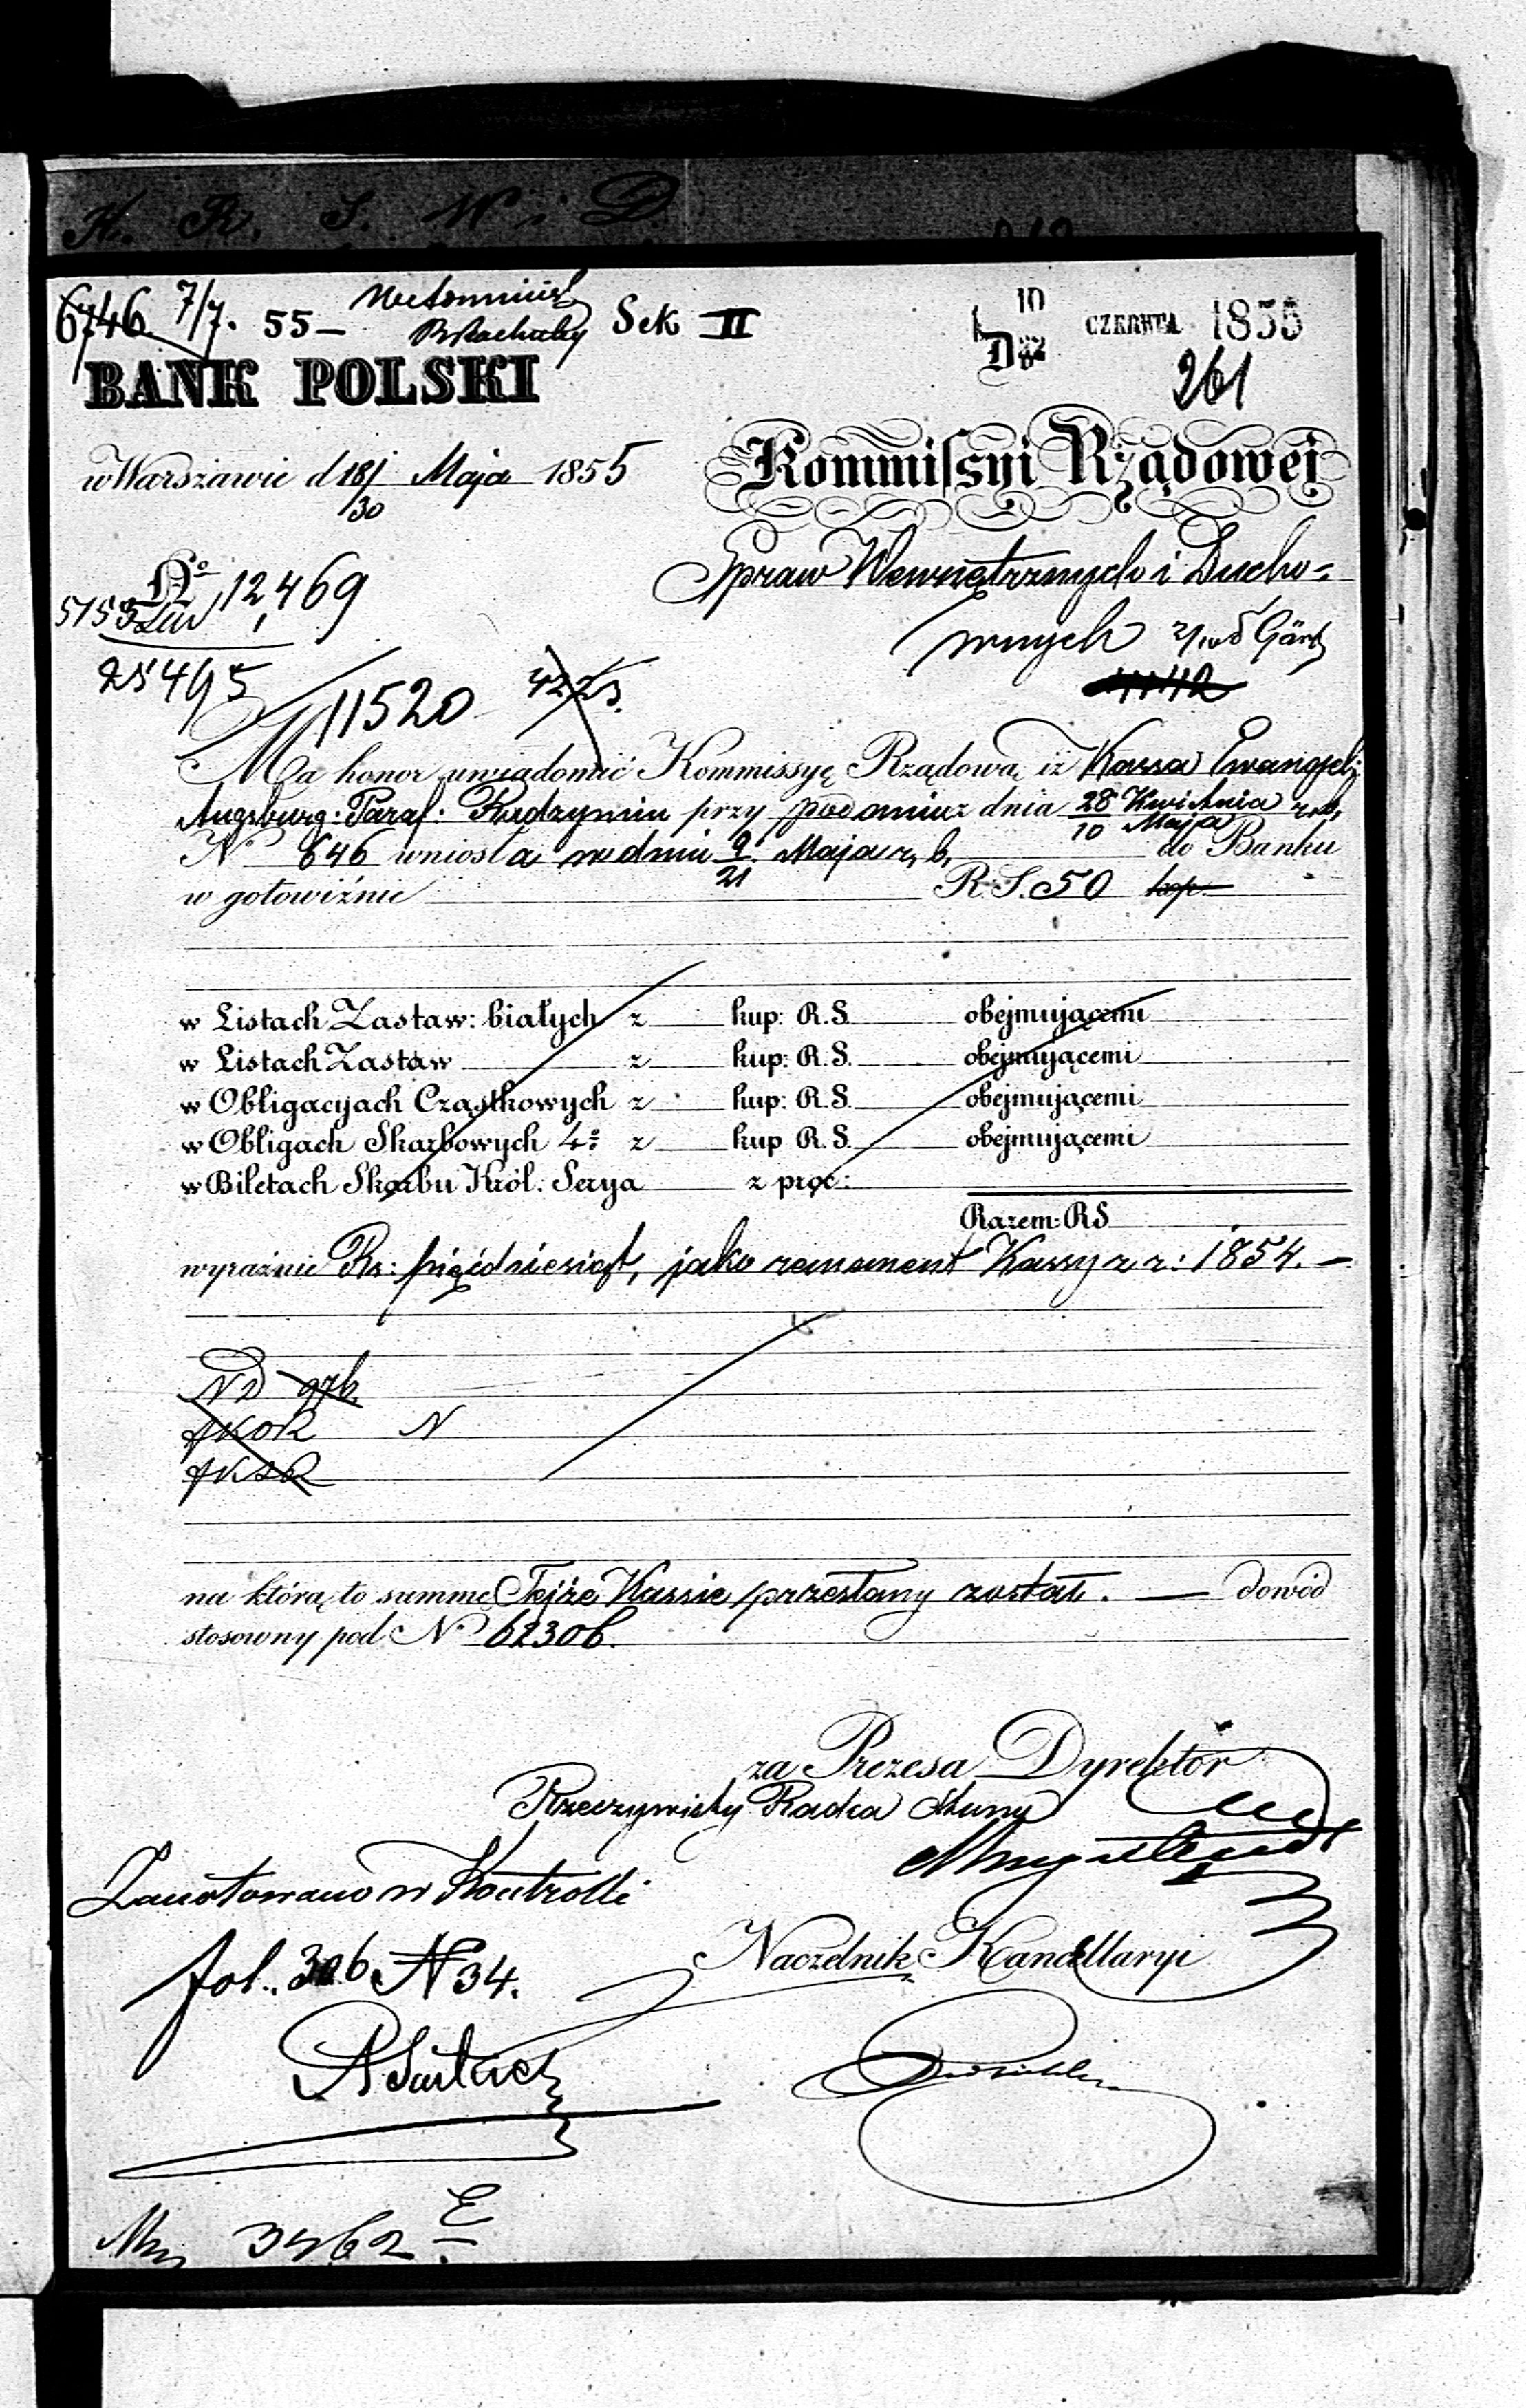 K. R. S. W i D.
6746 7/7. 55 — Sek II
10 CZERWCA 1855
D 22
261
BANK POLSKI
w Warszawie d 18/30 Maja 1855
Kommissyi Rządowej
Spraw Wewnętrznych i Ducho=
wnych
No 12,469
25495
11520
Ma honor uwiadomić Kommissyę Rządową iż Kassa Ewangeli:
Augsburg: Paraf: Radzymin przy dnia 28 Kwietnia/10 Maja r. b.
No 646 wniosła w dniu 9/21 Maja r. b. do Banku
w gotowiźnie R.S. 50 kop.
w Listach Zastaw: białych z kup: R.S. obejmującemi
w Listach Zastaw z kup: R.S. obejmującemi
w Obligacyach Cząstkowych z kup: R.S. obejmującemi
w Obligach Skarbowych 4% z kup R.S. obejmującemi
w Biletach Skarbu Król: Serya z proc:
Razem: RS
wyraźnie Rs: pięćdziesiąt, jako remanent Kassy z r: 1854. —
N
na którą to summę Tejże Kassie przesłany został. — dowód
stosowny pod No 62306.
za Prezesa Dyrektor
Rzeczywisty Radca Stanu
Zanotowano w Kontrolli
fol. 306 N 34.
Naczelnik Kancellaryi
3462 E